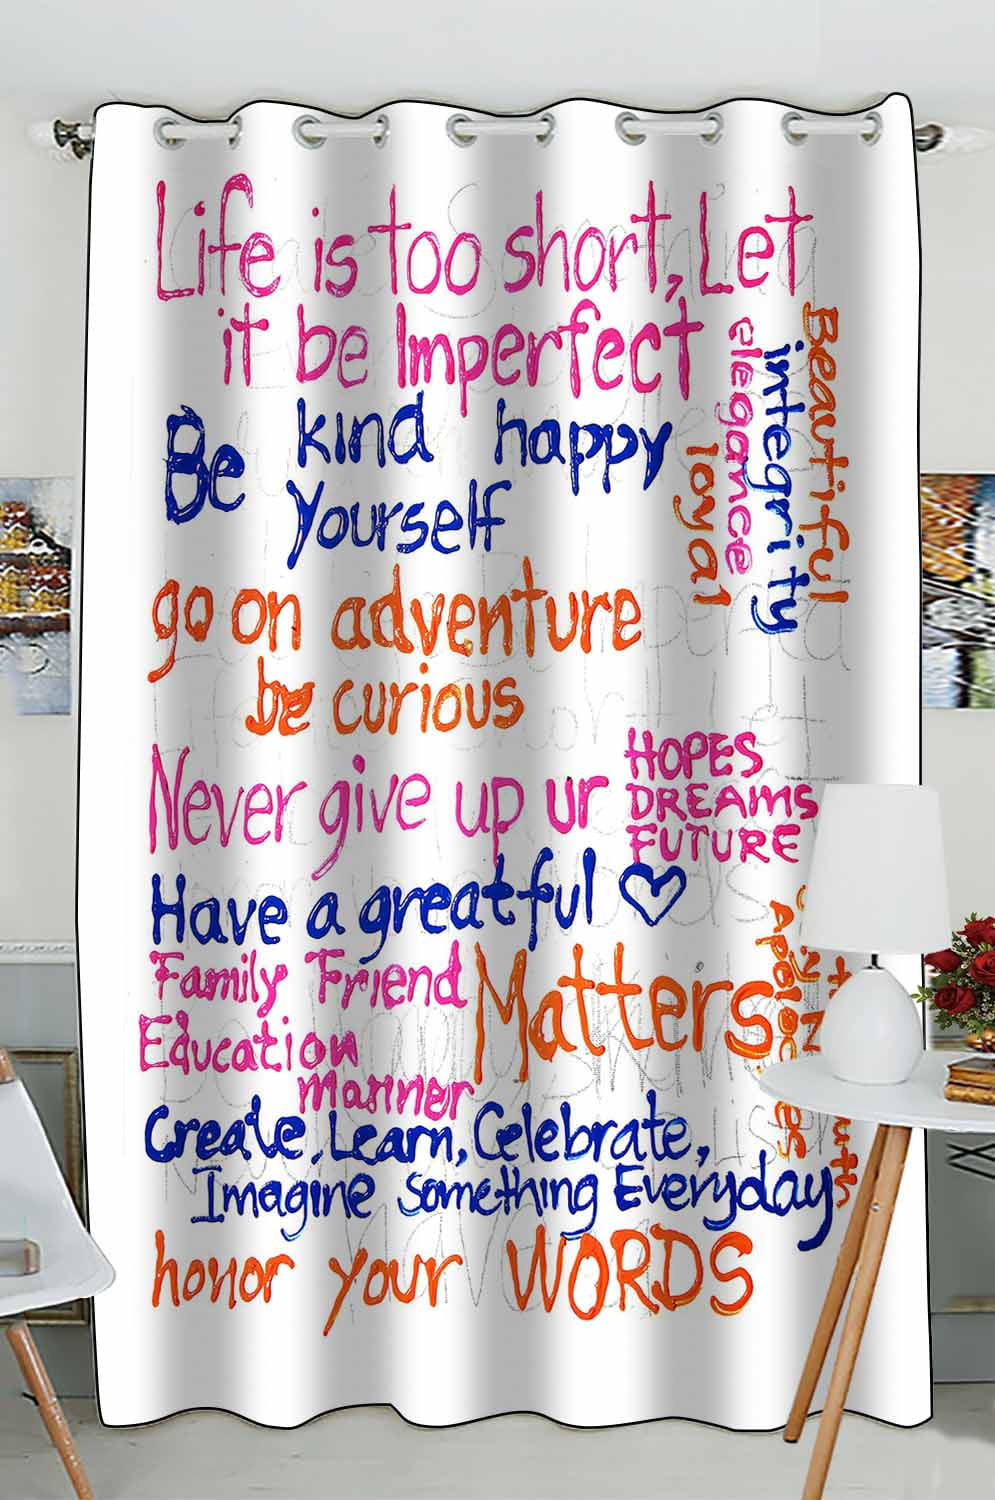 Life is too short, Let
it be Imperfect
Be kind happy
Yourself
Beautiful
integrity
elegance
loyal
go on adventure
be curious
Never give up ur
HOPES
DREAMS
FUTURE
Have a greatful
Family Friend
Education
manner
Matters
Create, Learn, Celebrate,
Imagine Something Everyday
honor your WORDS